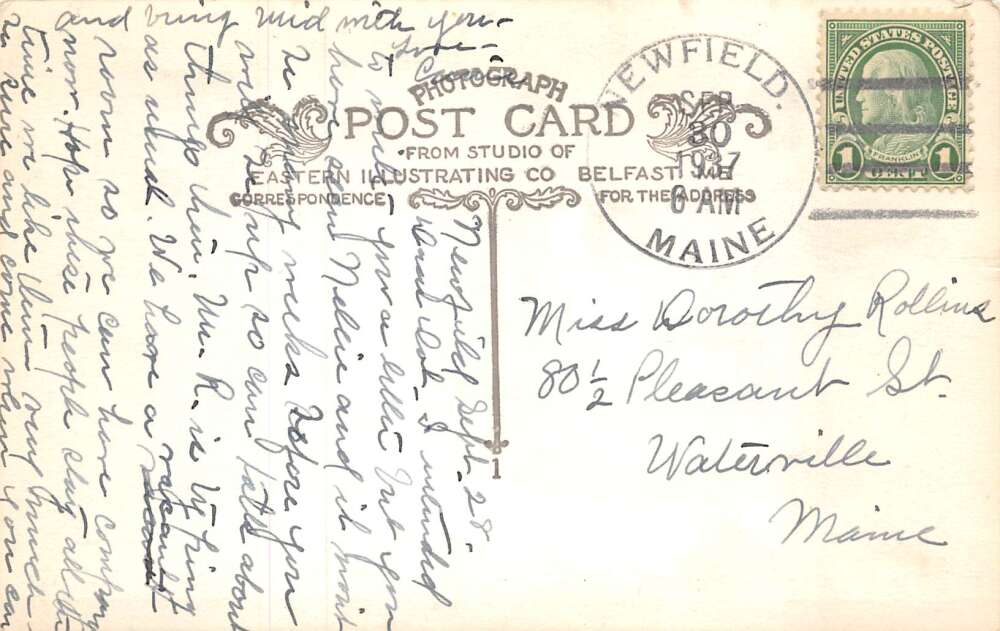 PHOTOGRAPH
POST CARD
FROM STUDIO OF
EASTERN ILLUSTRATING CO BELFAST, ME
CORRESPONDENCE
FOR THE ADDRESS
1
NEWFIELD.
SEP
30
1937
6 AM
MAINE
UNITED STATES POSTAGE
1 FRANKLIN 1
CENT
Miss Dorothy Rollins
80 1/2 Pleasant St.
Waterville
Maine
Newfield Sept. 28.
I intended
to write you a letter but you
have seen Nellie and it wont
be many weeks before you
will be up so can talk about
things then. Mr. R. is trying
as usual. We have a vacant
room so we can have company
now. Hope these people stay all the
time we like them very much
Be sure and come when you can
and bring Wid with you -
Love -